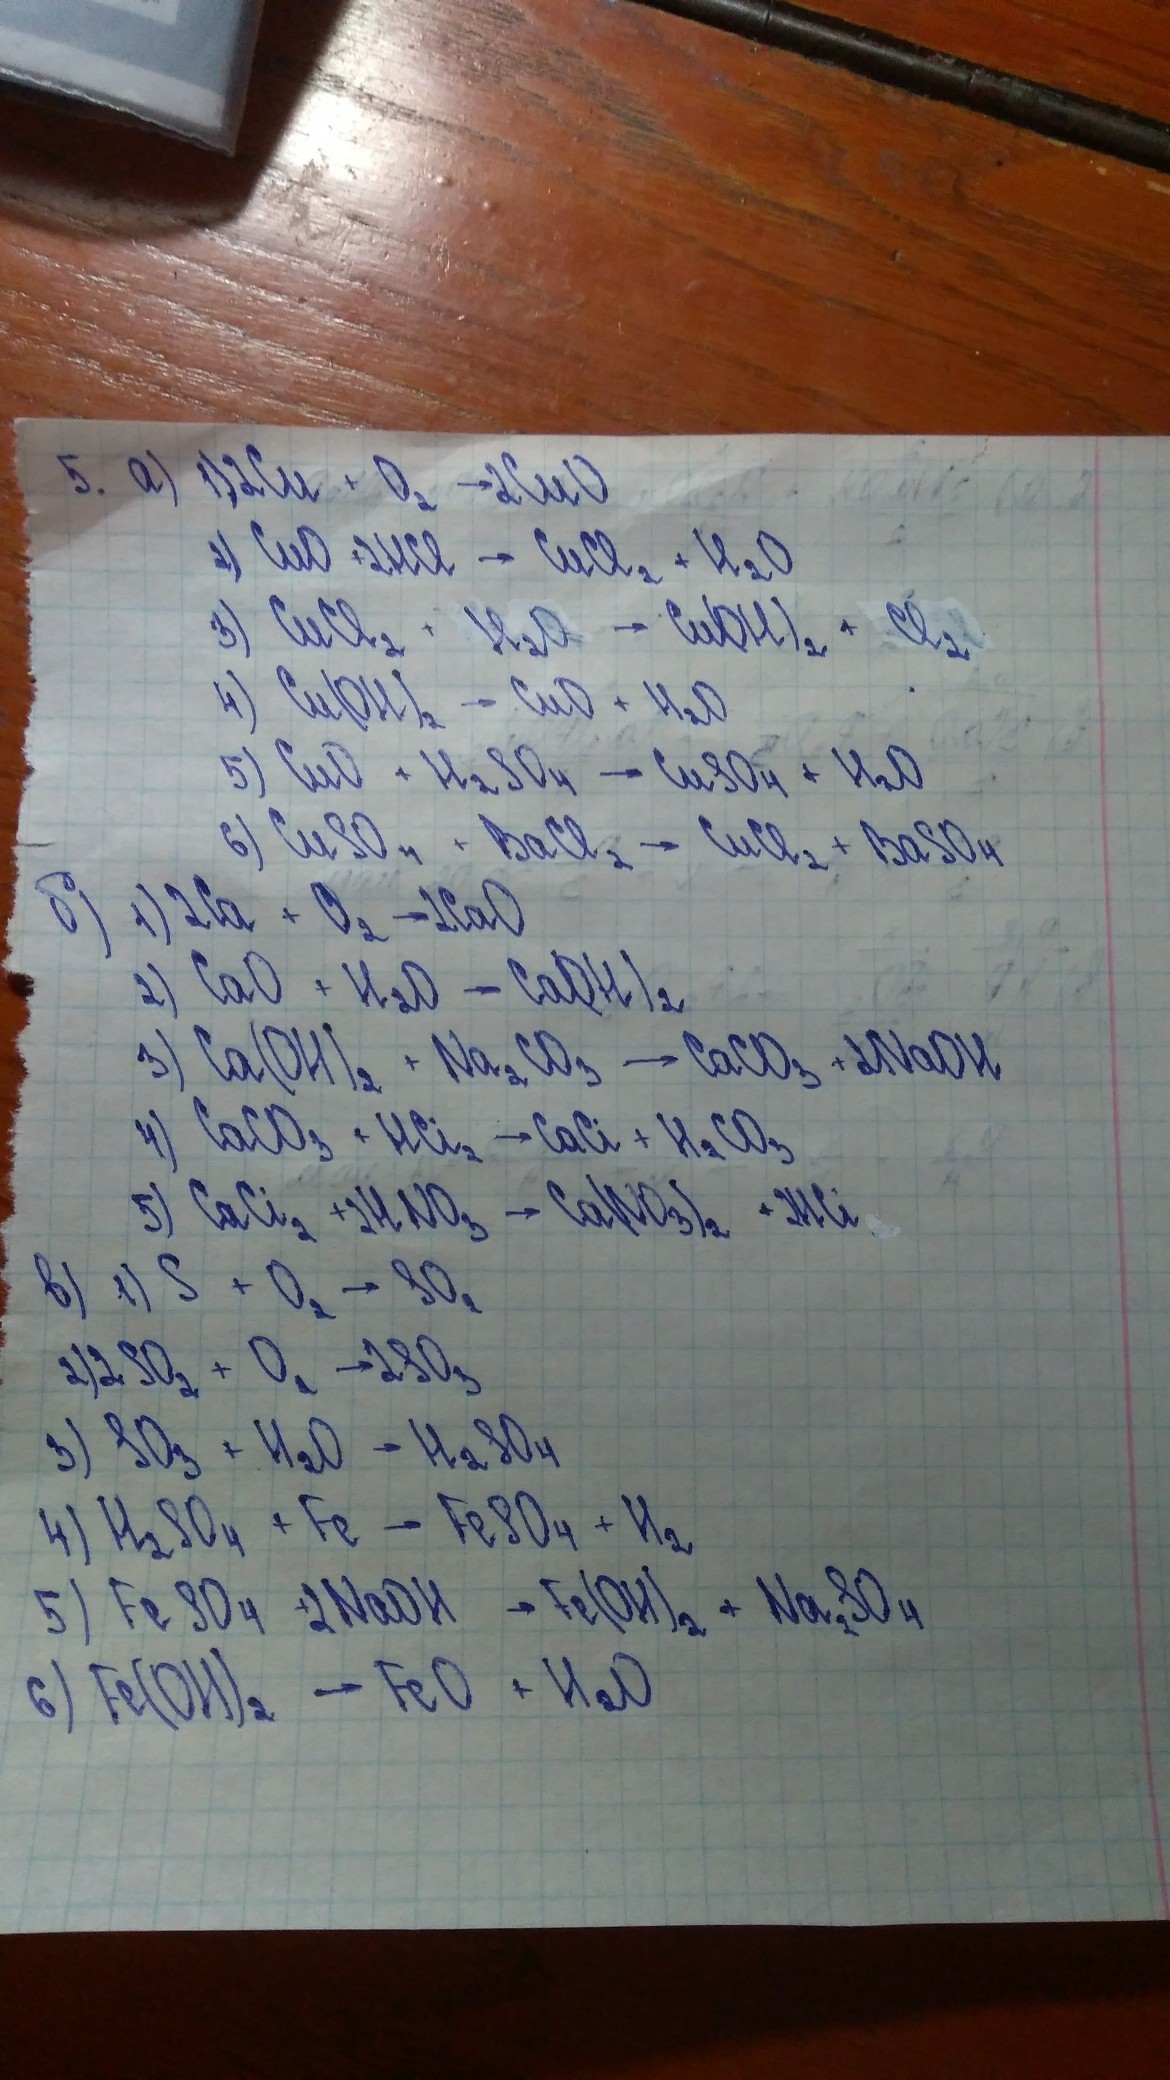 5. а) 1) 2Cu + O₂ → 2CuO
2) CuO + 2HCl → CuCl₂ + H₂O
3) CuCl₂ + H₂O → Cu(OH)₂ + Cl₂
4) Cu(OH)₂ → CuO + H₂O
5) CuO + H₂SO₄ → CuSO₄ + H₂O
6) CuSO₄ + BaCl₂ → CuCl₂ + BaSO₄
б) 1) 2Ca + O₂ → 2CaO
2) CaO + H₂O → Ca(OH)₂
3) Ca(OH)₂ + Na₂CO₃ → CaCO₃ + 2NaOH
4) CaCO₃ + HCi₂ → CaCi + H₂CO₃
5) CaCi₂ + 2HNO₃ → Ca(NO₃)₂ + 2HCi
в) 1) S + O₂ → SO₂
2) 2SO₂ + O₂ → 2SO₃
3) SO₃ + H₂O → H₂SO₄
4) H₂SO₄ + Fe → FeSO₄ + H₂
5) FeSO₄ + 2NaOH → Fe(OH)₂ + Na₂SO₄
6) Fe(OH)₂ → FeO + H₂O